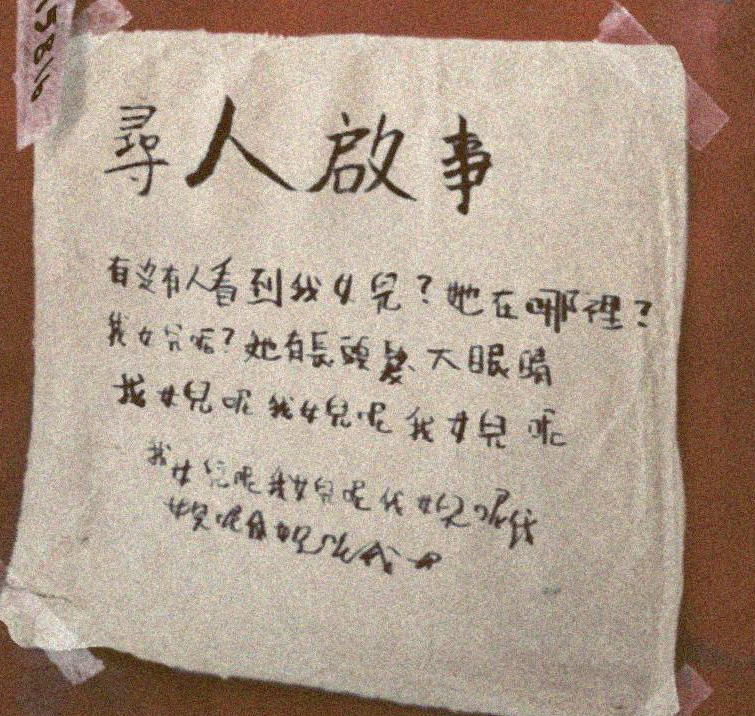 15816
尋人啟事
有沒有人看到我女兒？她在哪裡？
我女兒呢？她有長頭髮 大眼睛
我女兒呢 我女兒呢 我女兒呢
我女兒呢我女兒呢我女兒呢我
女兒呢我女兒呢我